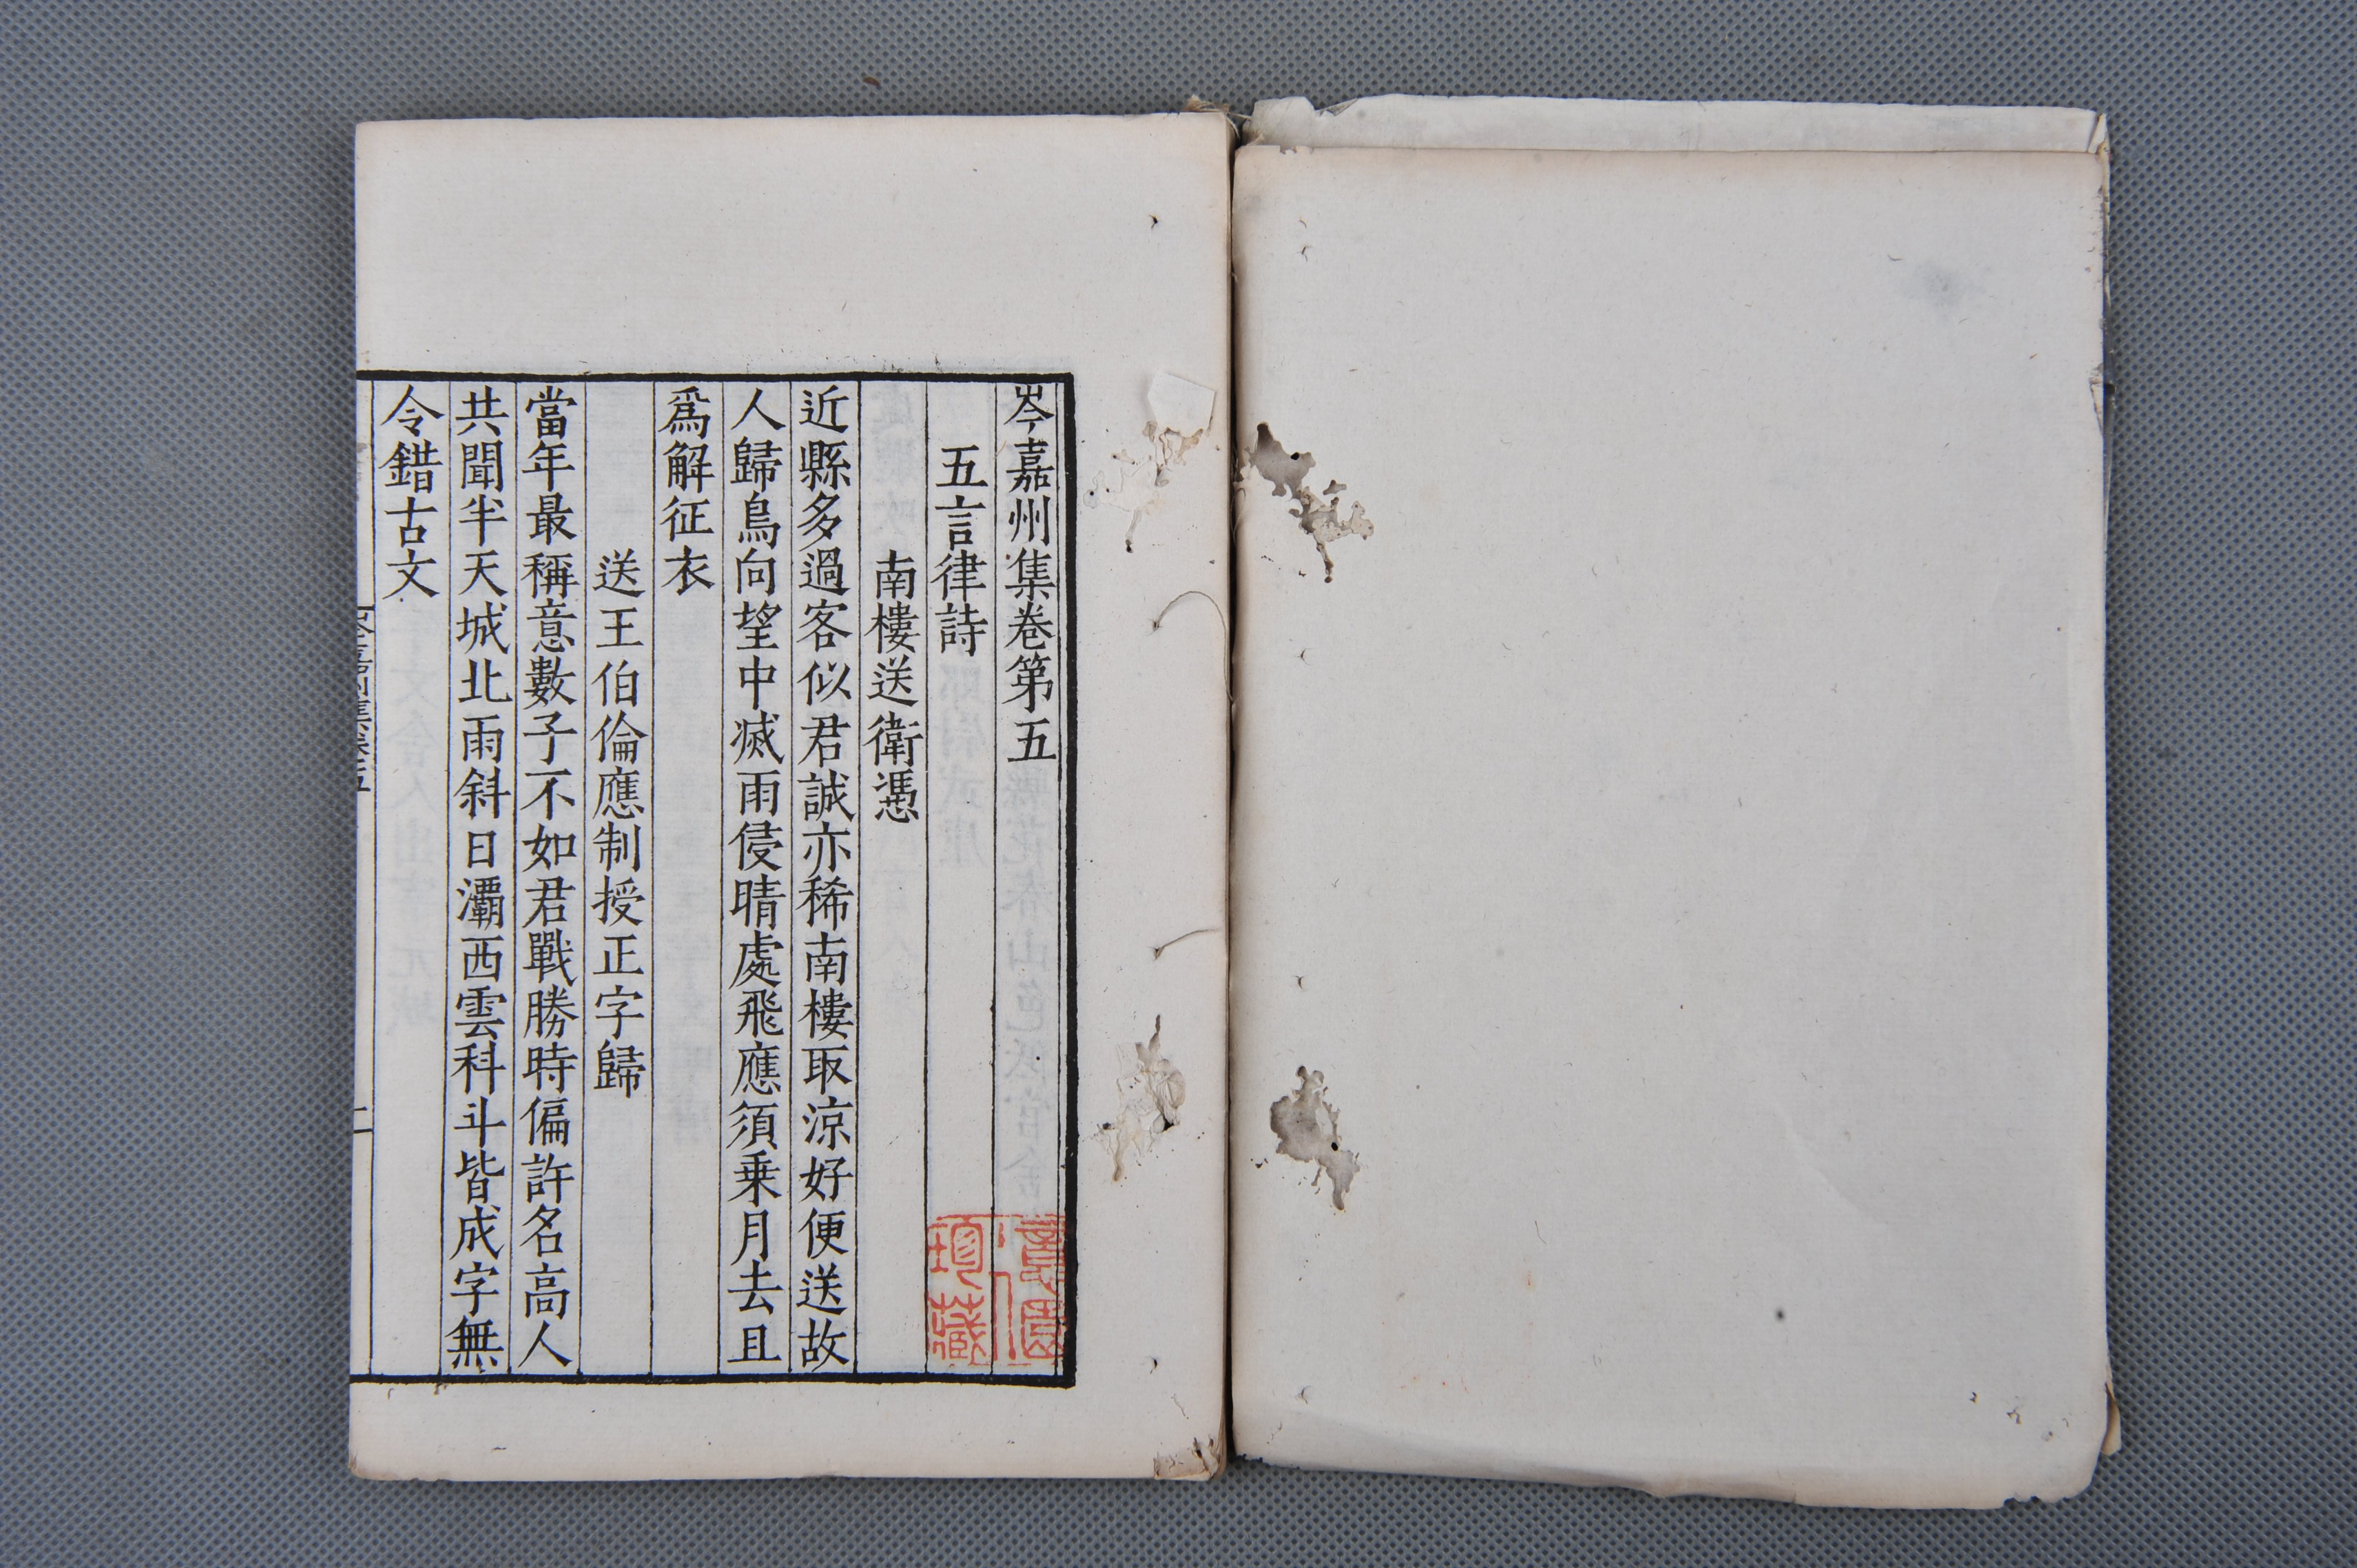 岑嘉州集卷第五
五言律詩
南樓送衛憑
近縣多過客似君誠亦稀南樓取涼好便送故
人歸鳥向望中滅雨侵晴處飛應須乗月去且
爲解征衣
送王伯倫應制授正字歸
當年最稱意數子不如君戰勝時偏許名高人
共聞半天城北雨斜日灞西雲科斗皆成字無
令錯古文
珍藏